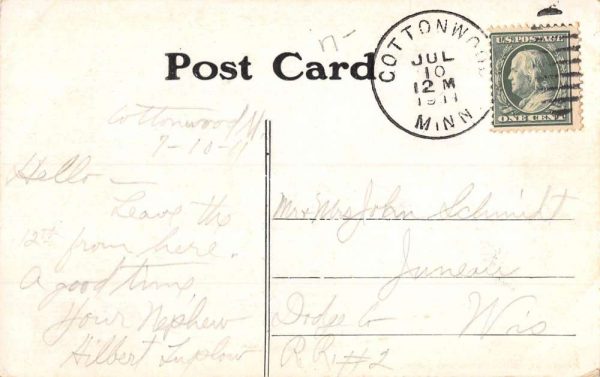 Post Card
COTTONWOOD
JUL
10
12 M
1911
MINN.
U.S. POSTAGE
ONE CENT
Cottonwood M.
7-10-11
Hello —
Leave the
12th from here.
A good time
Your Nephew
Hilbert
Mr & Mrs John Schmidt
Juneau
Dodge Co Wis
R.R. #2